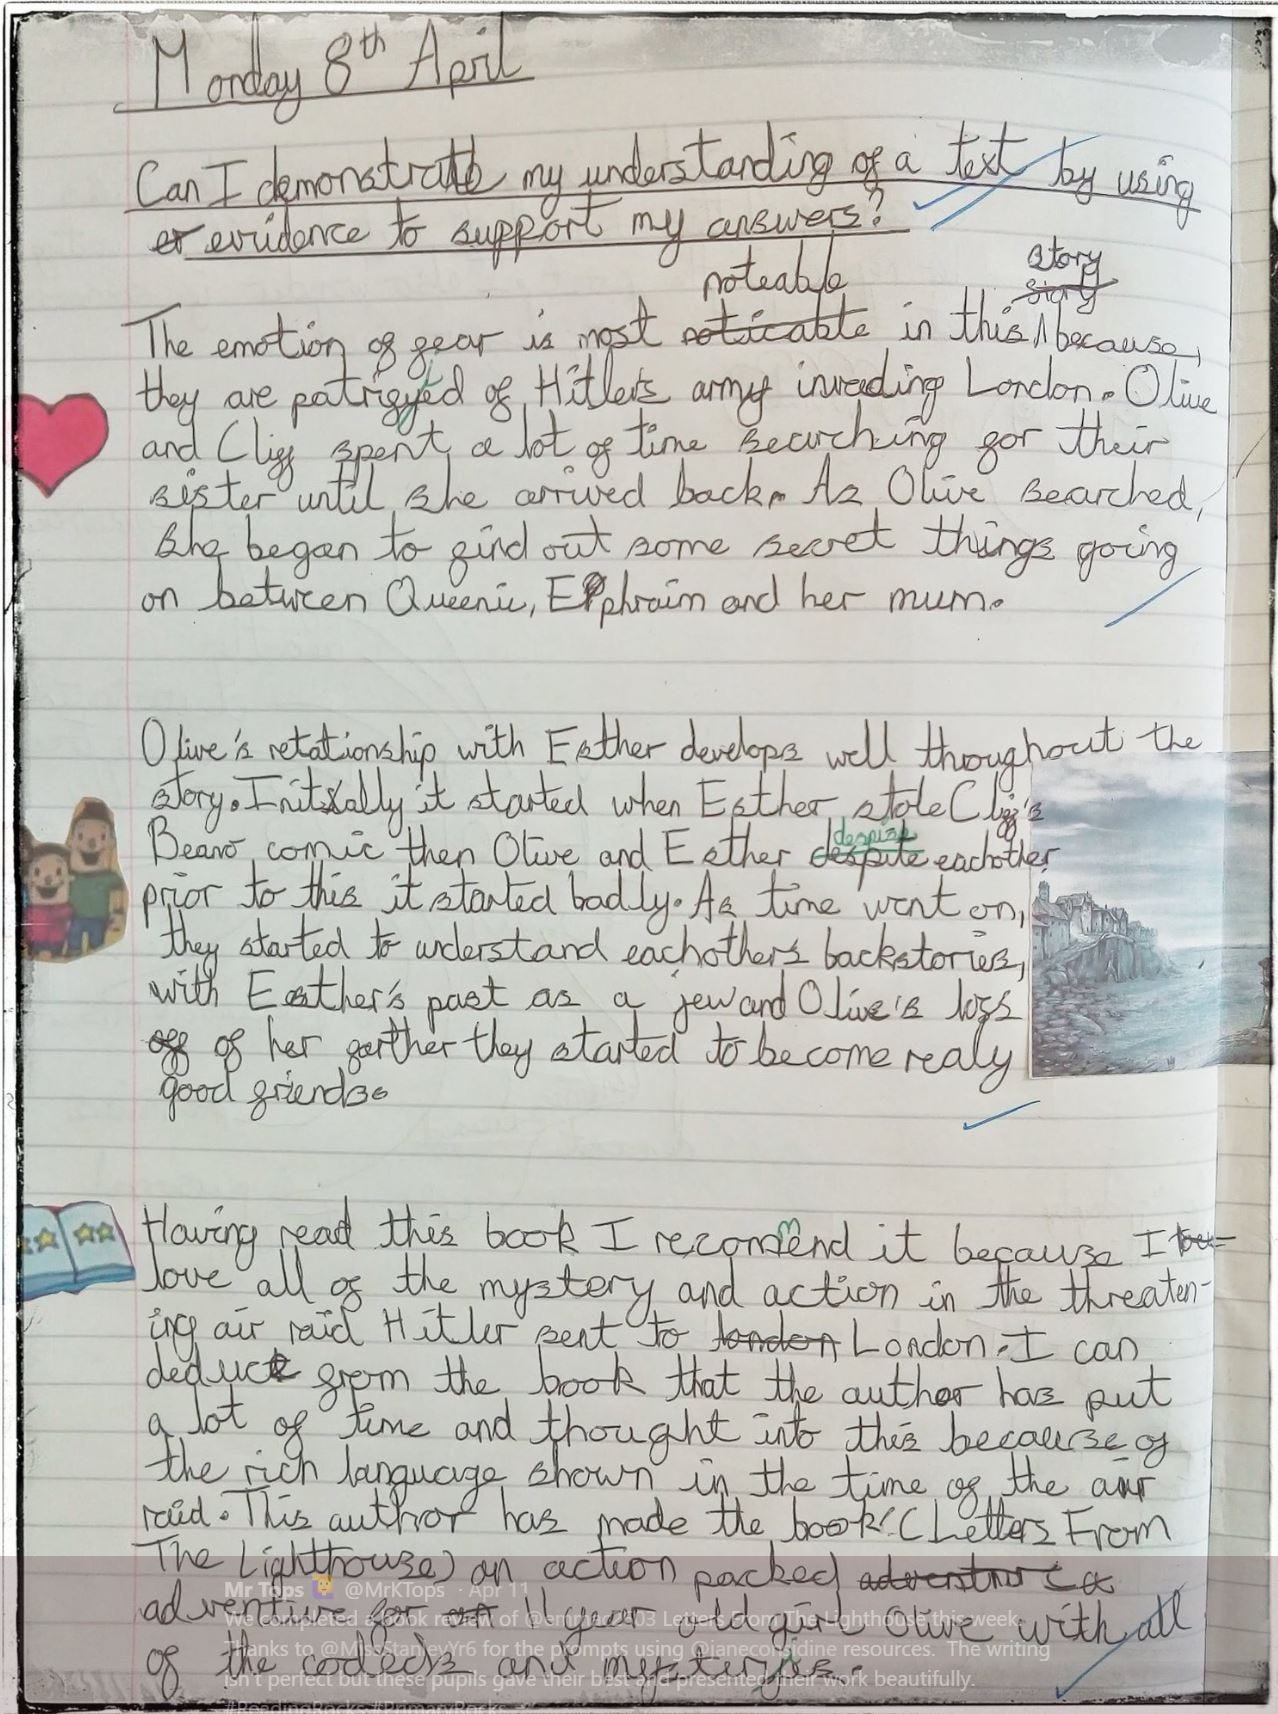 Monday 8th April
Can I demonstrate my understanding of a text by using
er evidence to support my answers?
noteable story
story
The emotion of fear is most noticable in this ^ because,
they are patrifyed of Hitler's army invading London. Olive
and Cliff spent a lot of time searching for their
sister until she arrived back. As Olive searched,
she began to find out some secret things going
on between Queenie, Ephraim and her mum.
Olive's relationship with Esther develops well throughout the
story. Initially it started when Esther stole Cliff's
despise
Beano comic then Olive and Esther despite eachother
prior to this it started badly. As time went on,
they started to understand eachother's backstories,
with Esther's past as a jew and Olive's loss
off of her farther they started to become realy
good friends.
Having read this book I recommend it because I
love all of the mystery and action in the threaten-
ing air raid Hitler sent to london London. I can
deduce from the book that the author has put
a lot of time and thought into this because of
the rich language shown in the time of the air
raid. This author has made the book (Letters From
The Lighthouse) an action packed
adventure for an 11 year old girl Olive with all
of the codes and mysteries.
Mr Tops @MrKTops · Apr 11
We completed a book review of @emmac2603 Letters From The Lighthouse this week.
Thanks to @MissStanleyYr6 for the prompts using @janeconsidine resources. The writing
isn't perfect but these pupils gave their best and presented their work beautifully.
#ReadingRocks #PrimaryRocks